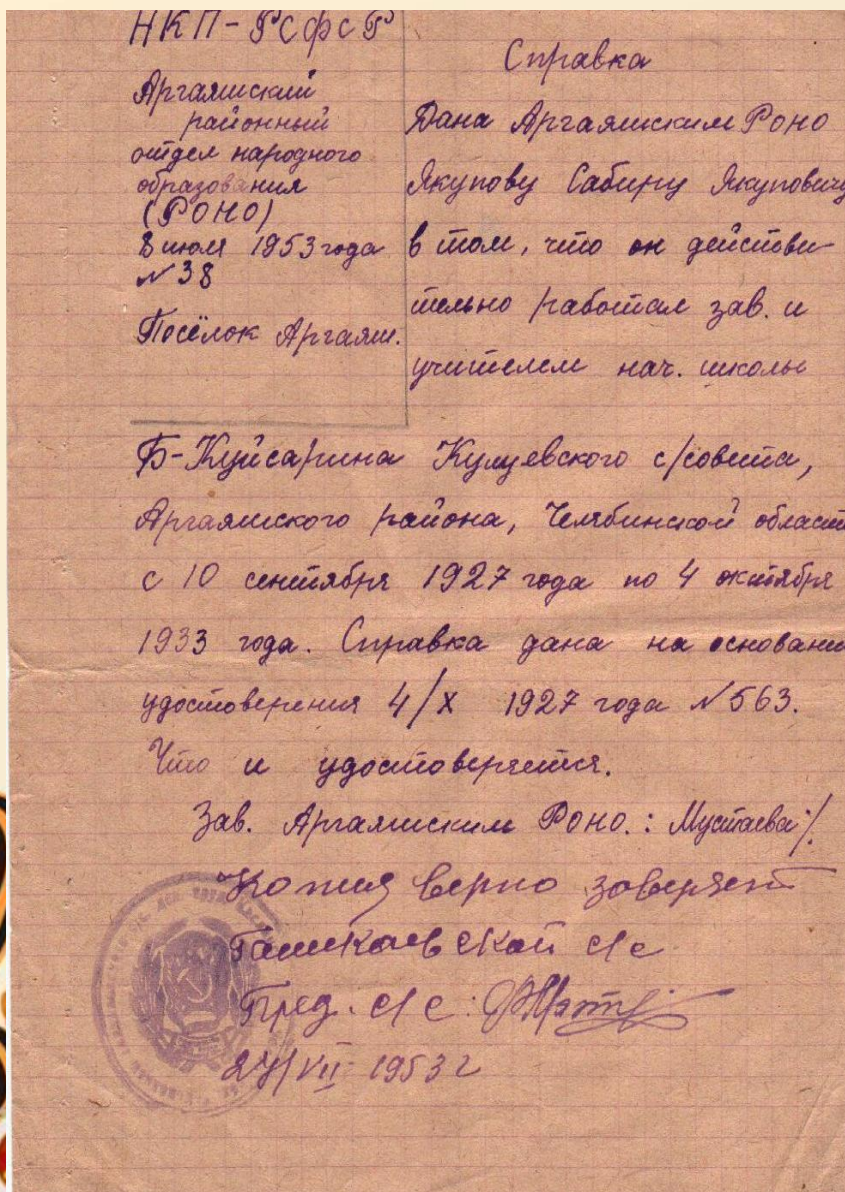 НКП-РСФСР
Аргаяшский
районный
отдел народного
образования
(РОНО)
8 июля 1953 года
№38
Посёлок Аргаяш.
Справка
Дана Аргаяшским Роно
Якупову Сабиру Якуповичу
в том, что он действи-
тельно работал зав. и
учителем нач. школы
Б-Куйсарина Кулуевского с/совета,
Аргаяшского района, Челябинской област
с 10 сентября 1927 года по 4 октября
1933 года. Справка дана на основани
удостоверения 4/X 1927 года №563.
Что и удостоверяется.
Зав. Аргаяшским Роно.: Мустаева /.
Копия верно заверяет
Ташкаевской с/с
Пред. с/с:
27/VII-1953 г